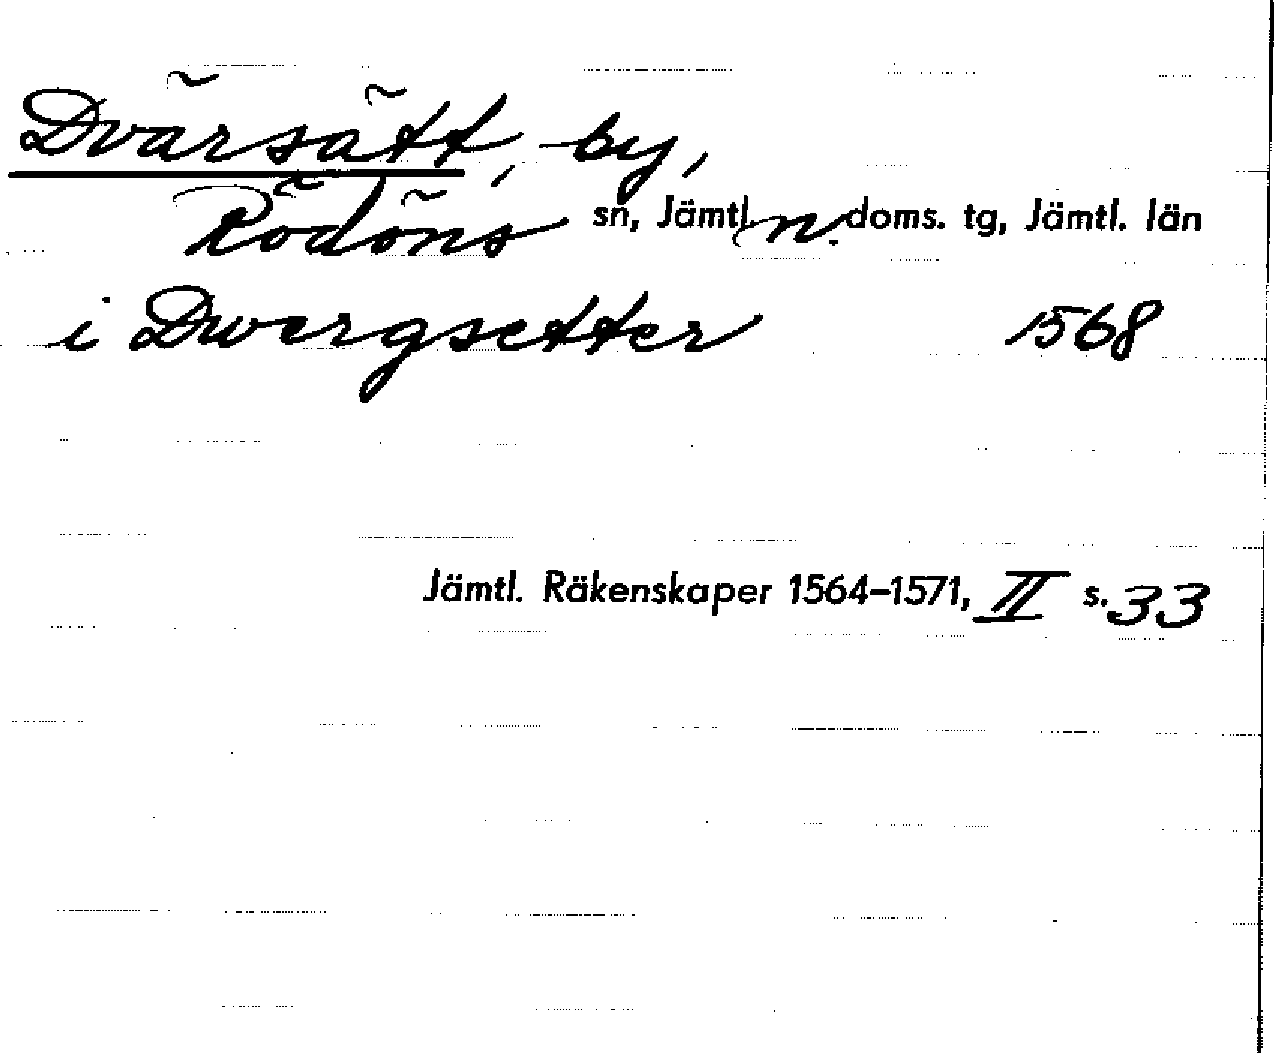 Dvärsätt, by,
Rödöns sn, Jämtl. n. doms. tg, Jämtl. län
i Dwergsetter 1568
Jämtl. Räkenskaper 1564–1571, II s. 33